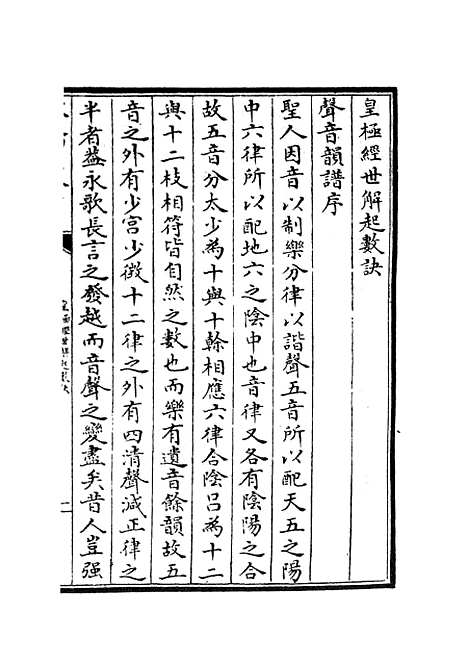 皇極經世解起數訣
聲音韻譜序
聖人因音以制樂分律以諧聲五音所以配天五之陽
中六律所以配地六之陰中也音律又各有陰陽之合
故五音分太少為十與十榦相應六律合陰呂為十二
與十二枝相符皆自然之數也而樂有遺音餘韻故五
音之外有少宮少徴十二律之外有四清聲減正律之
半者葢永歌長言之發越而音聲之變盡矣昔人豈强
皇極經世解起數訣